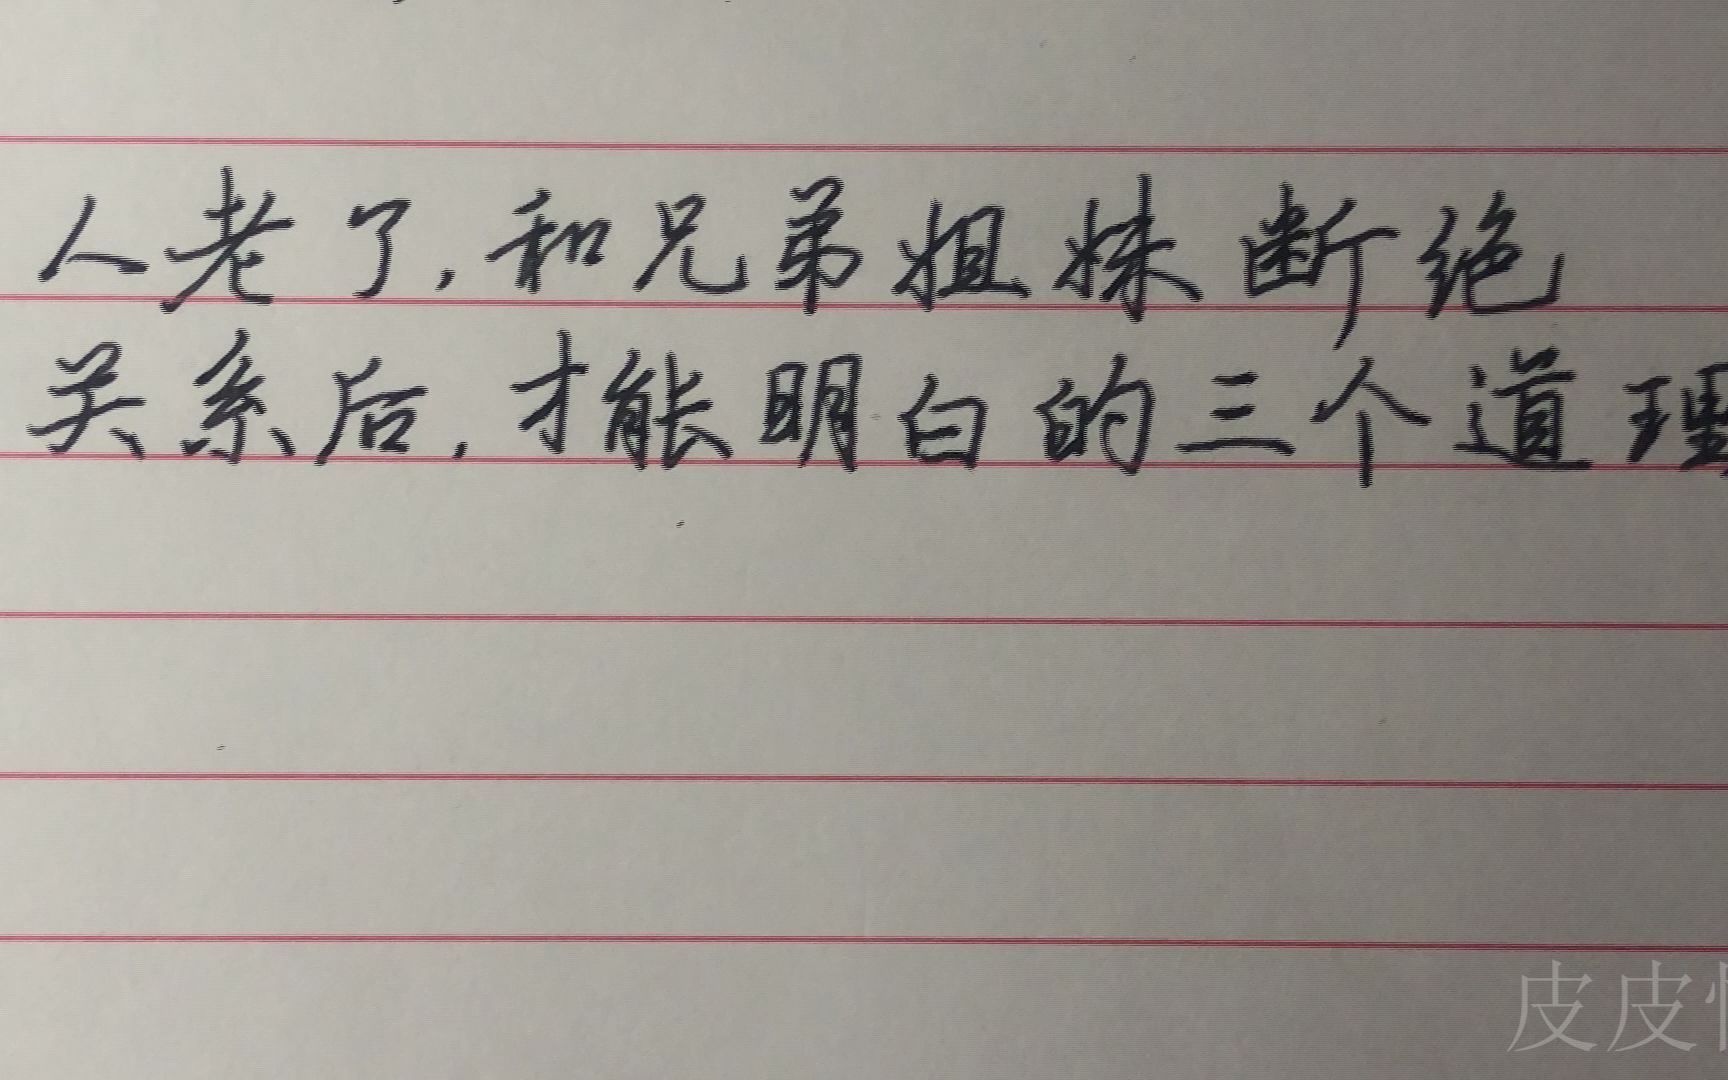 人老了,和兄弟姐妹断绝
关系后,才能明白的三个道理
皮皮